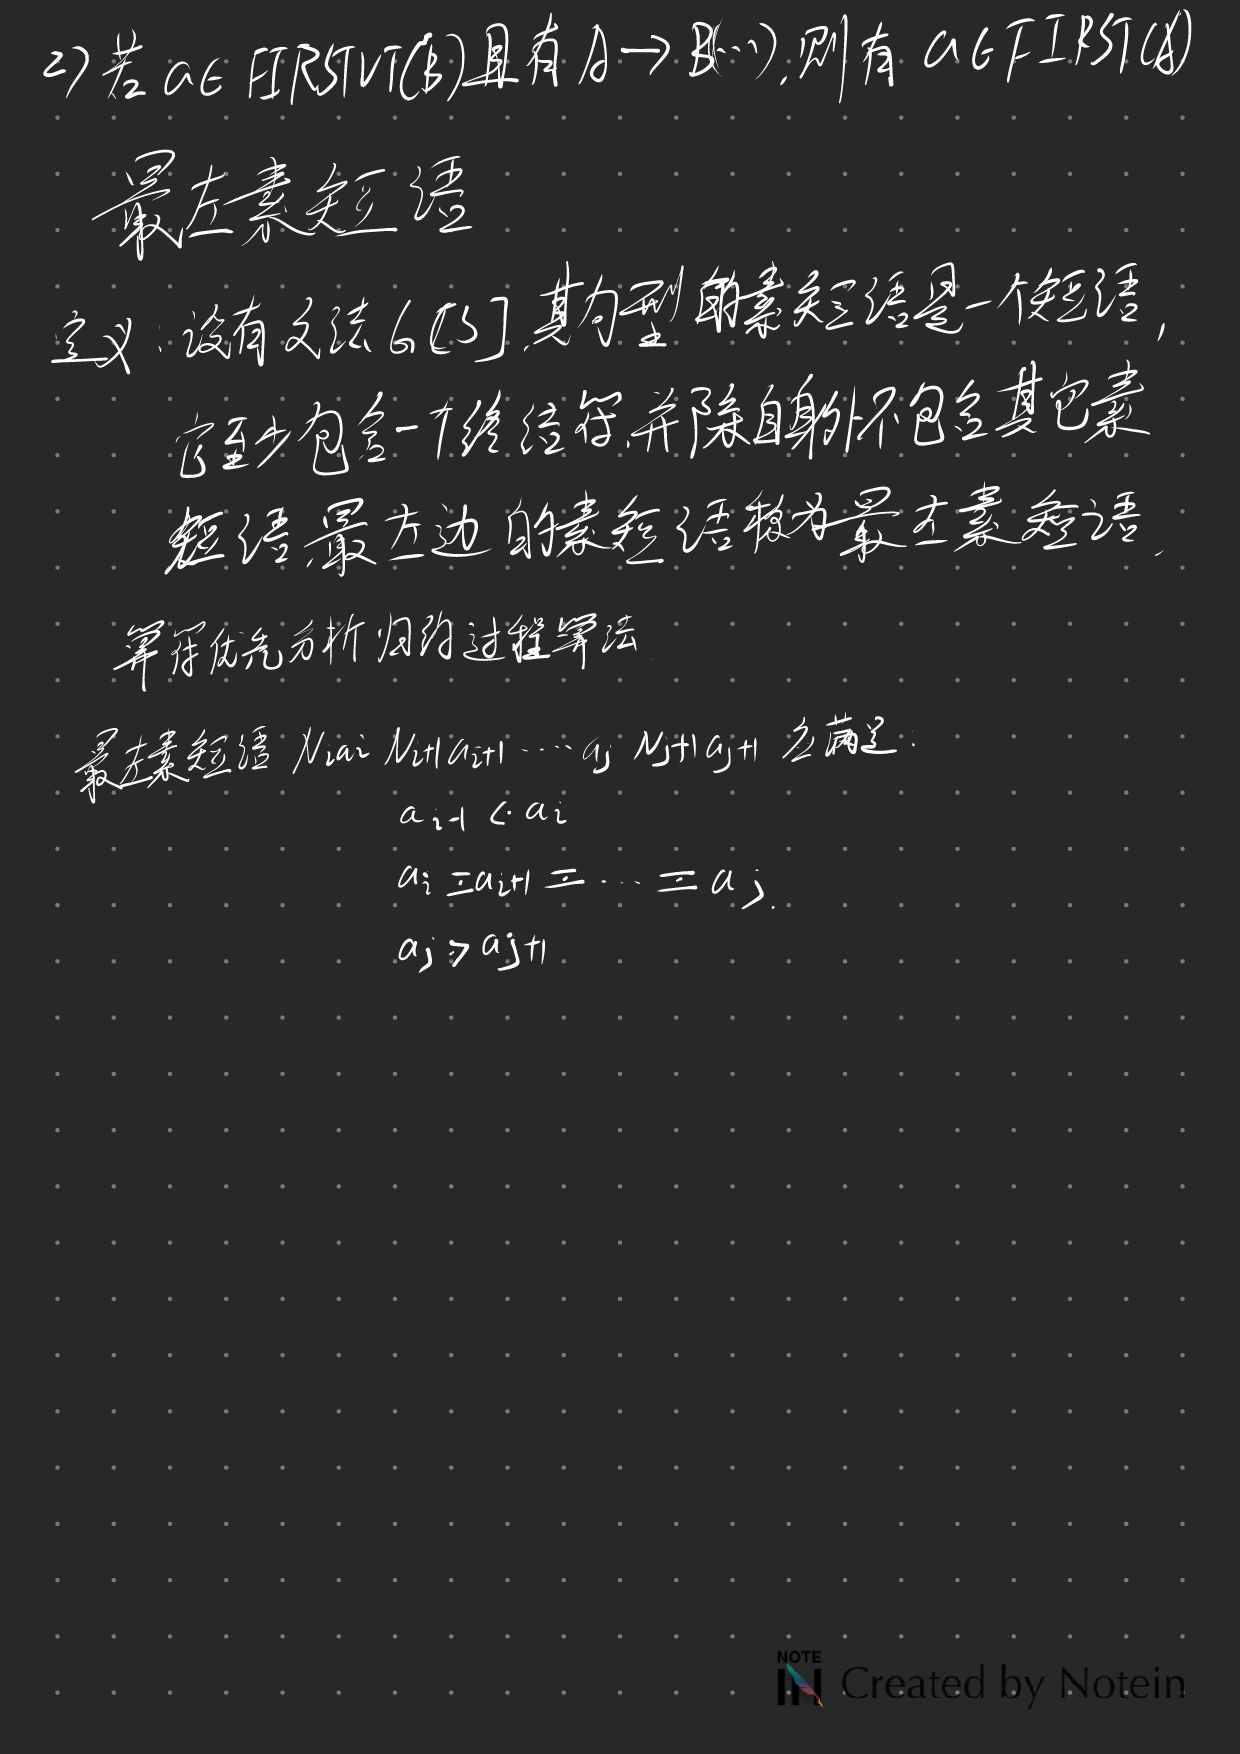 2) 若 a∈ FIRSTVT(B)且有 A→B(…),则有 a∈FIRST(A)
最左素短语
定义:设有文法G[S],其句型的素短语是一个短语,
它至少包含一个终结符,并除自身外不包含其它素
短语,最左边的素短语称为最左素短语.
算符优先分析归约过程算法.
最左素短语 Niai Ni+1ai+1 ···· aj Nj+1aj+1 应满足:
ai-1 <· ai
ai ≐ ai+1 ≐ ··· ≐ aj.
aj ·> aj+1.
NOTE
IN Created by Notein